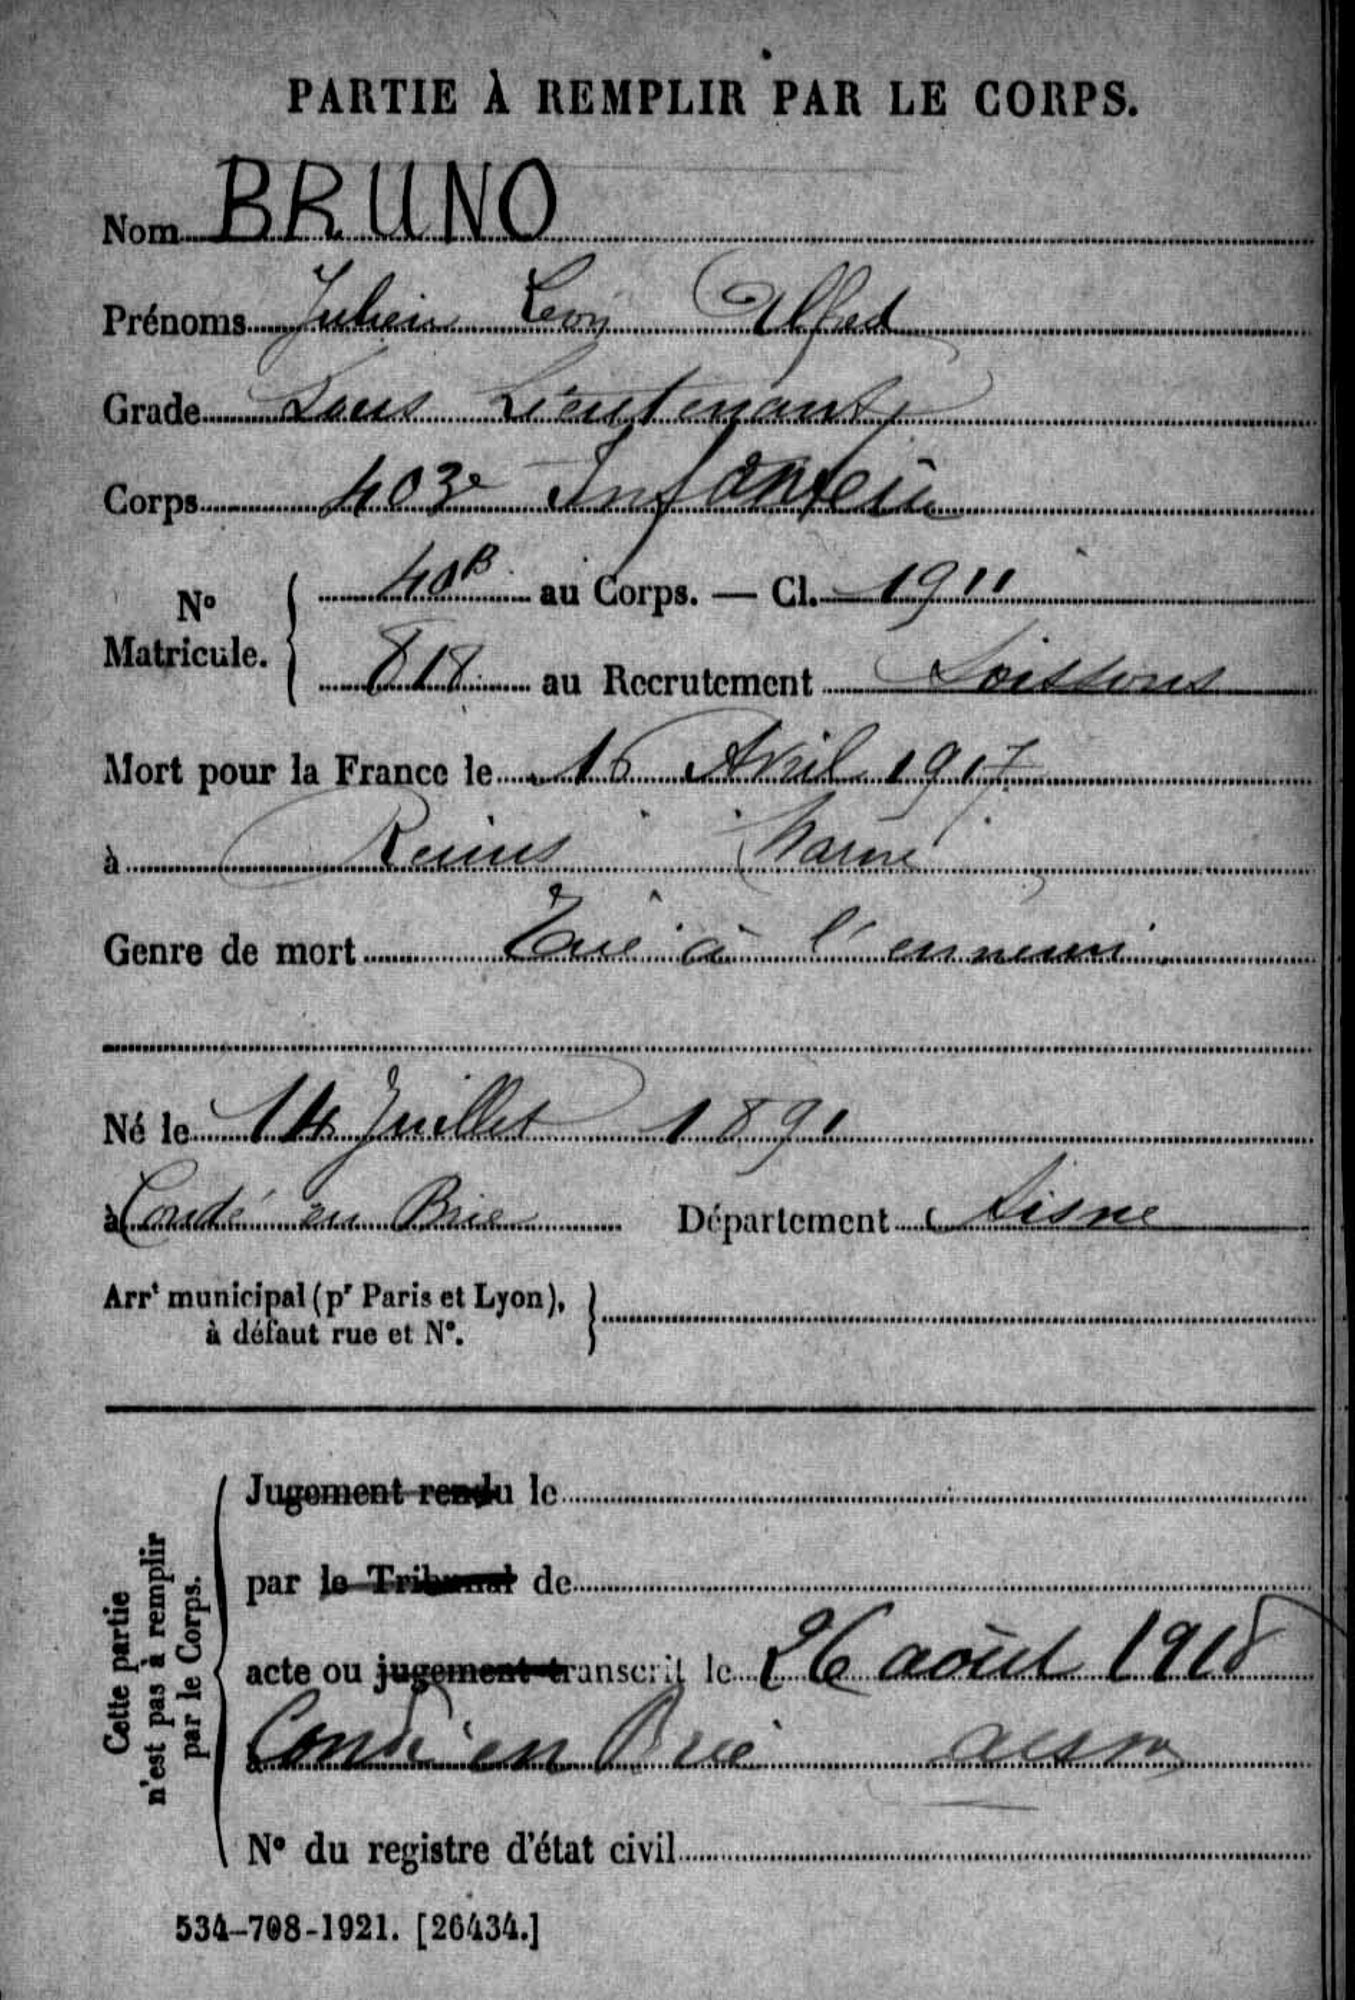 PARTIE À REMPLIR PAR LE CORPS.
Nom BRUNO
Prénoms Julien Léon Alfred
Grade Sous Lieutenant
Corps 403e Infanterie
No Matricule. 40B au Corps. — Cl. 1911
818 au Recrutement Soissons
Mort pour la France le 16 Avril 1917
à Reims Marne
Genre de mort Tué à l'ennemi
Né le 14 Juillet 1891
à Condé en Brie Département Aisne
Arrt municipal (pr Paris et Lyon), à défaut rue et No.
Cette partie n'est pas à remplir par le Corps.
Jugement rendu le
par le Tribunal de
acte ou jugement transcrit le 26 août 1918
à Condé en Brie aisne
No du registre d'état civil
534-708-1921. [26434.]